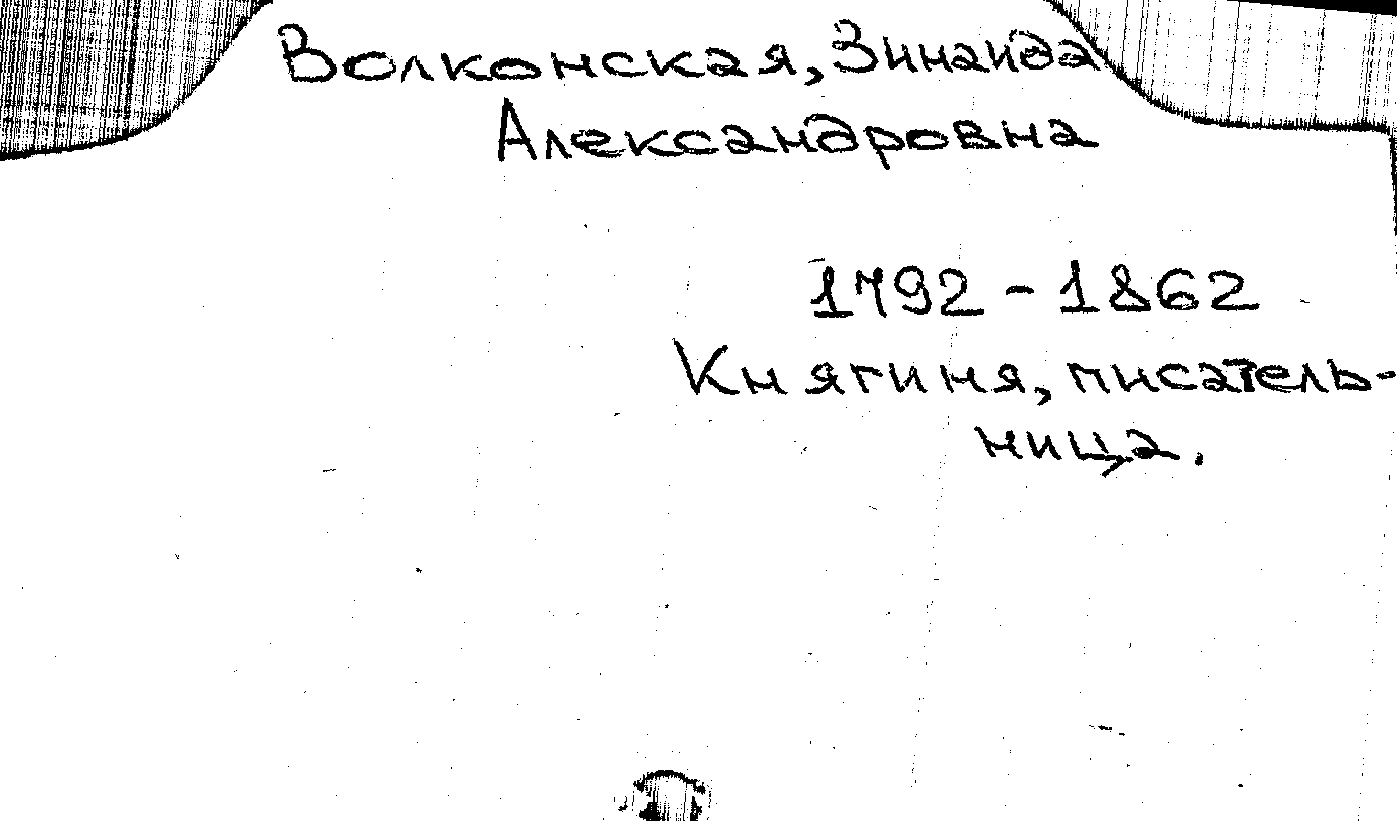 Волконская, Зинаида
Александровна
1792 - 1862
Княгиня, писатель-
ница.